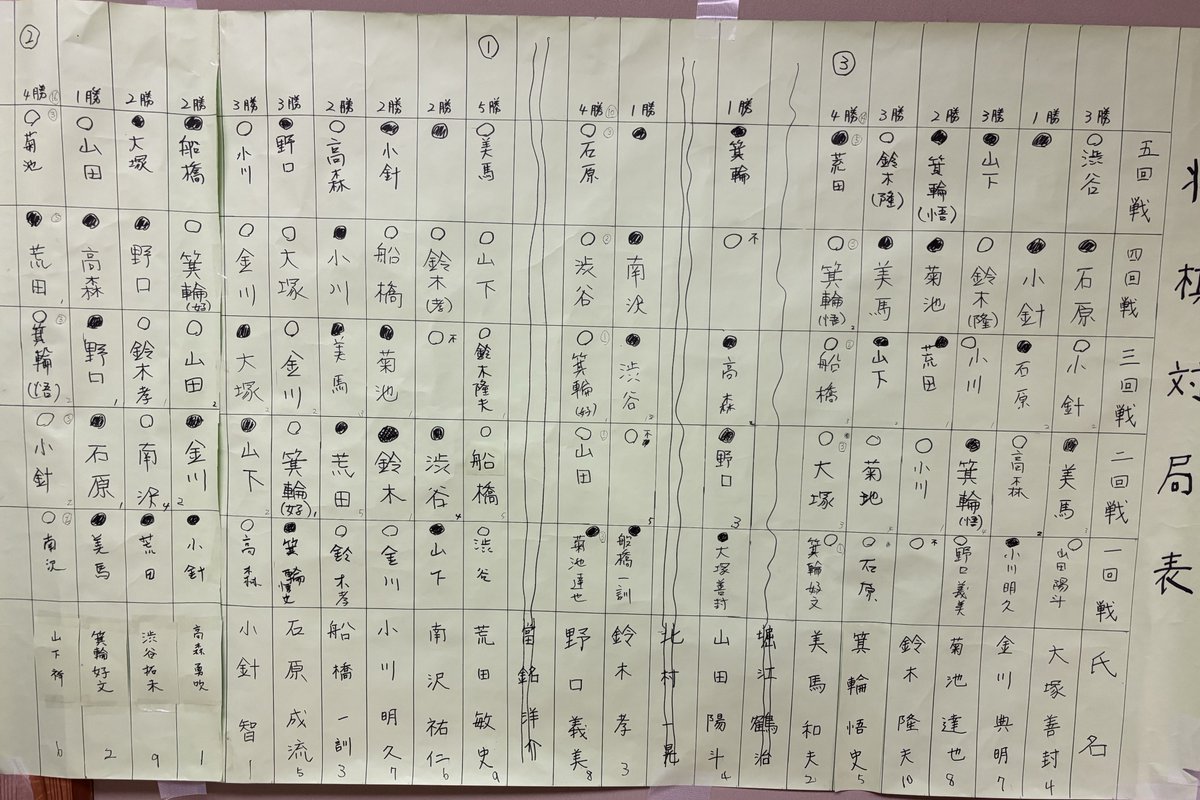 将棋対局表
五回戦
四回戦
三回戦
二回戦
一回戦
氏名
3勝
○渋谷
●石原
○小針
●美馬
○山田陽斗
大塚善封 4
1勝
●
●小針
●石原
○高森
●小川明久
金川典明 7
3勝
●山下
○鈴木(隆)
○小川
●箕輪(悟)
○野口義美
菊池達也 8
2勝
●箕輪(悟)
●菊池
●荒田
○小川
○不
鈴木隆夫 10
3勝
○鈴木(隆)
●美馬
●山下
○菊地
○石原
箕輪悟史 5
③
4勝
●荒田
○箕輪(悟)
○船橋
○大塚
○箕輪好文
美馬和夫 2
堀江鶴治
1勝
●箕輪
○不
●高森
●野口
●大塚善封
山田陽斗 4
北村一晃
1勝
●
●南沢
●渋谷
○不
●船橋一訓
鈴木孝 3
4勝
○石原
○渋谷
○箕輪(好)
○山田
●菊池達也
野口義美 8
當銘洋介
①
5勝
○美馬
○山下
○鈴木隆夫
○船橋
○渋谷
荒田敏史 9
2勝
●
○鈴木(孝)
○不
●渋谷
●山下
南沢祐仁 6
2勝
●小針
○船橋
●菊池
●鈴木
○金川
小川明久 7
2勝
○高森
●小川
●美馬
●荒田
○鈴木孝
船橋一訓 3
3勝
●野口
○大塚
○金川
○箕輪(好)
●箕輪悟史
石原成流 5
3勝
○小川
○金川
●大塚
●山下
○高森
小針智 1
2勝
●船橋
○箕輪(好)
○山田
●金川
●小針
高森勇吹 1
2勝
●大塚
●野口
○鈴木孝
○南沢
●荒田
渋谷拓未 9
1勝
○山田
●高森
●野口
●石原
●美馬
箕輪好文 2
②
4勝
○菊池
●荒田
○箕輪(悟)
○小針
○南沢
山下 6